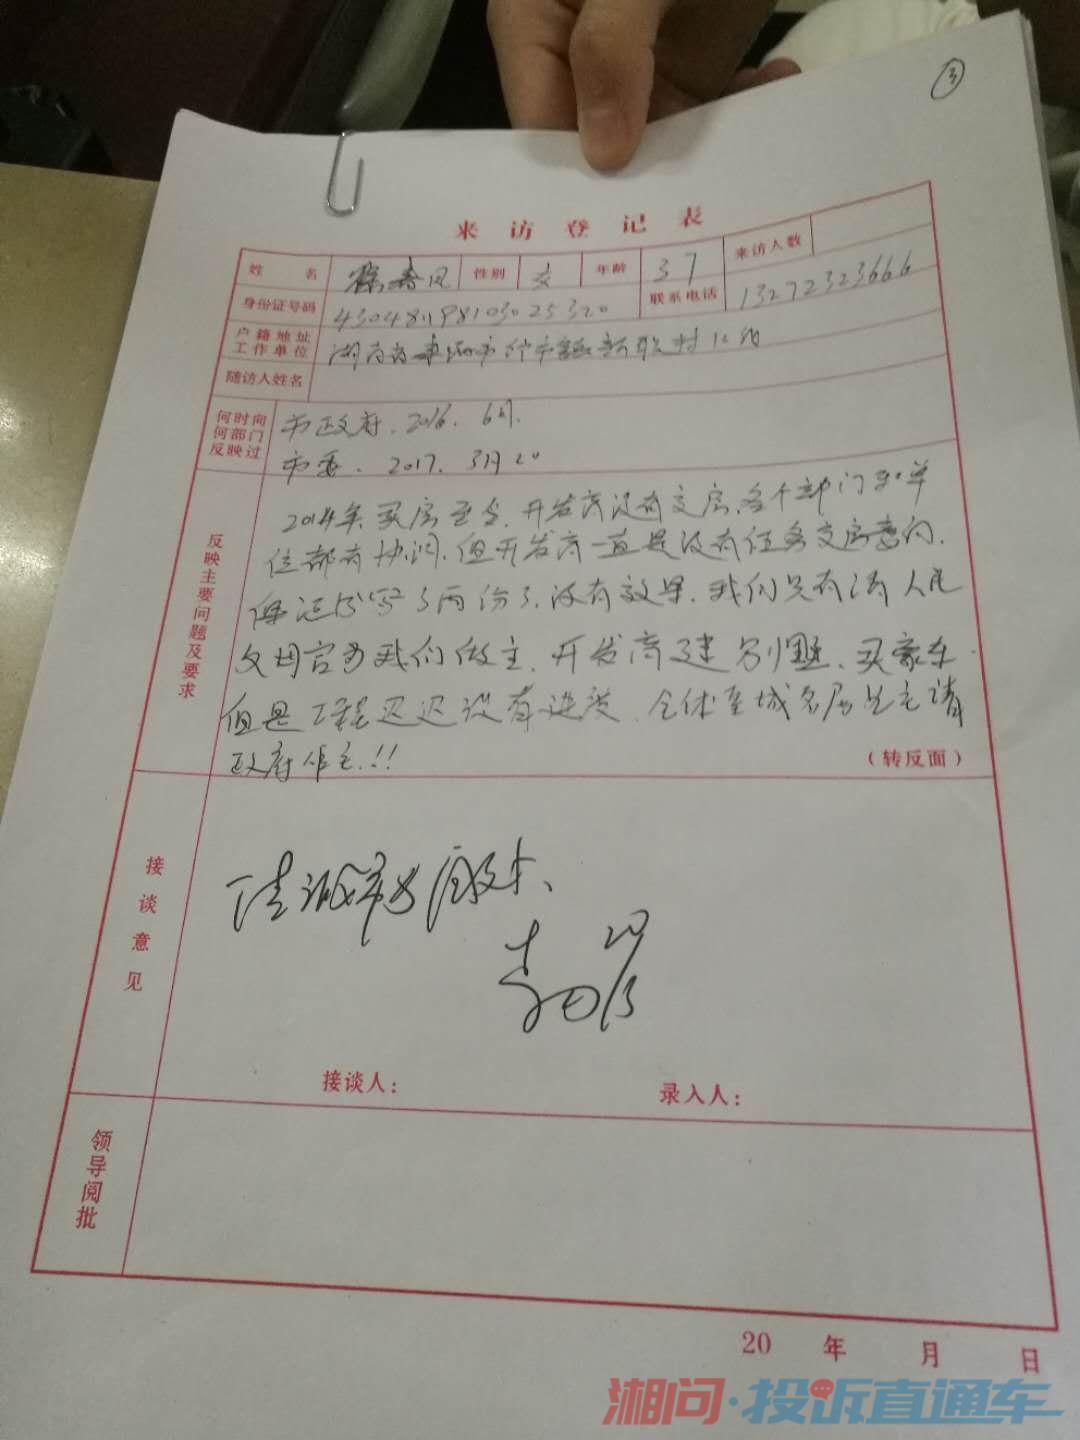 3
来访登记表
姓名 徐春凤 性别 女 年龄 37 来访人数
身份证号码 430481198103025320 联系电话 13272323666
户籍地址
工作单位 湖南省耒阳市 市 村12组
随访人姓名
何时间
何部门
反映过
市政府.2016.6月.
市委.2017.3月20
反映主要问题及要求
2014年买房至今.开发商没有交房.各个部门和单
位都有协调.但开发商一直是没有任务交房意向.
保证书写了两份了.没有效果.我们只有请人民
父母官为我们做主.开发商建别墅.买豪车.
但是工程迟迟没有进度.全体 城名居业主请
政府作主.!!
(转反面)
接谈意见
接谈人：
录入人：
领导阅批
20 年 月 日
湘问·投诉直通车